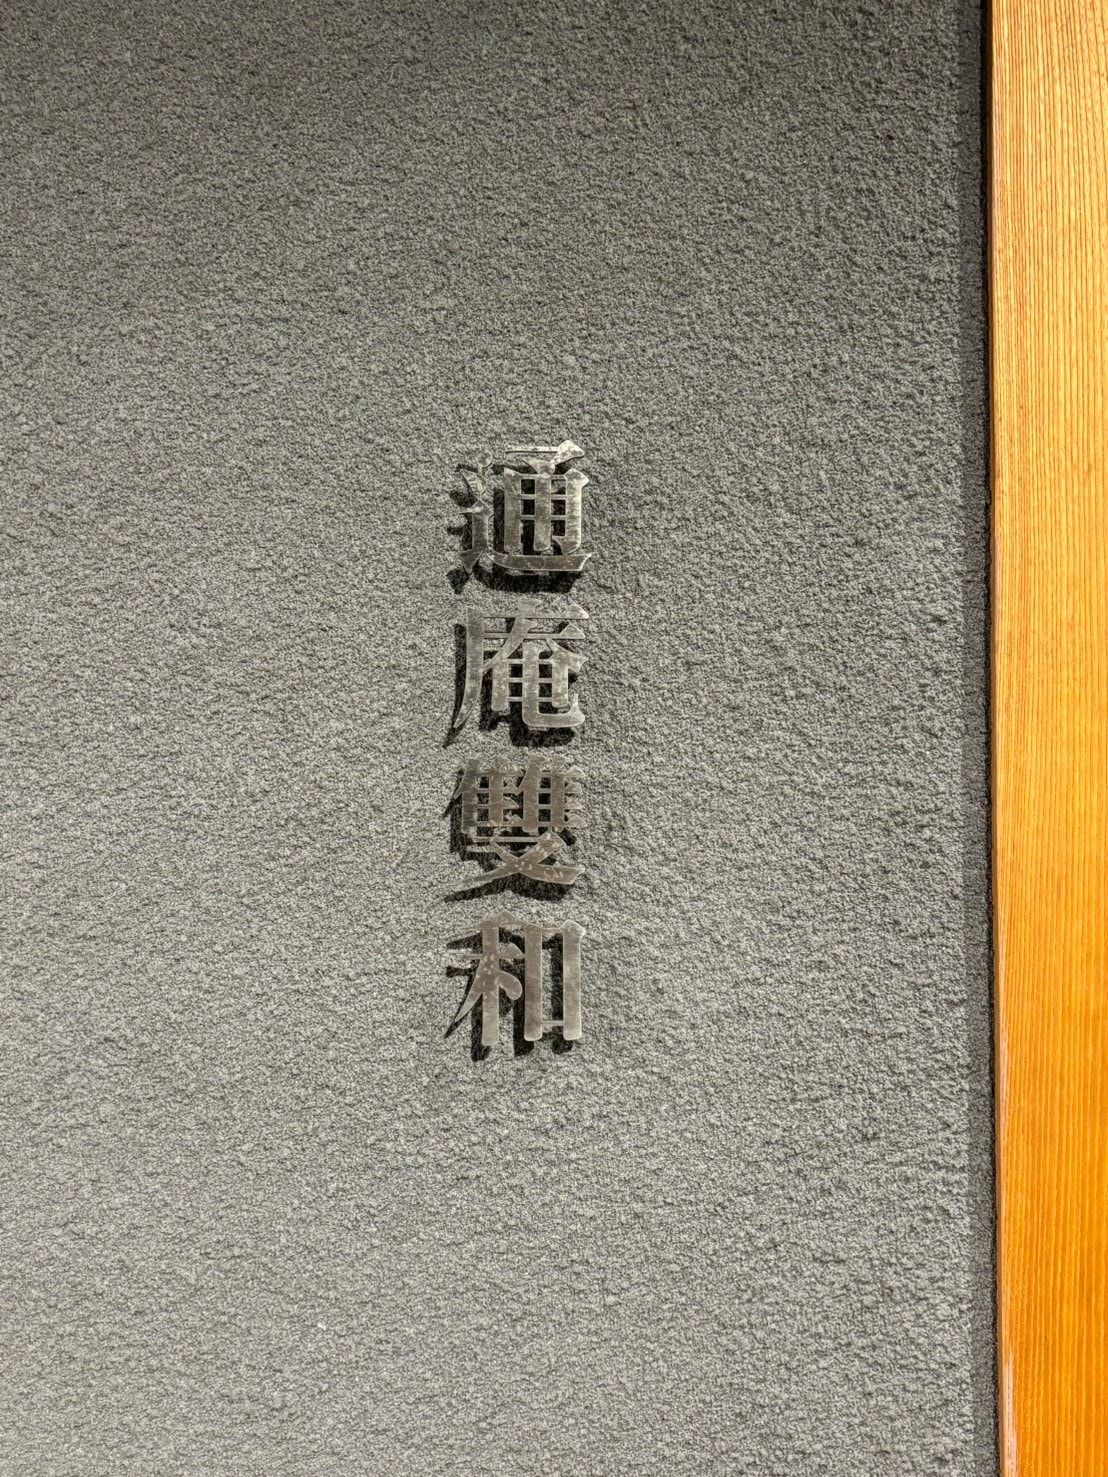 通庵雙和